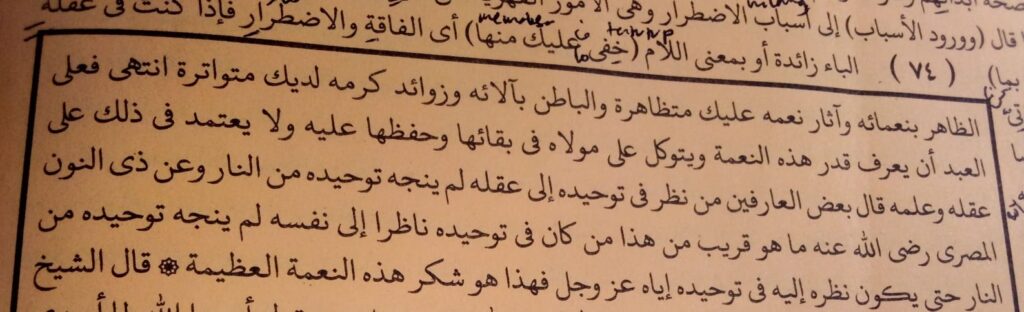 قال (وورود الأسباب) إلى أسباب الاضطرار وهى الأمور القهرية
member turnup
بما) (٧٤) الباء زائدة أو بمعنى اللام (خفى عليك منها) أى الفاقة والاضطرار فإذا كنت فى غفلة
الظاهر بنعمائه وآثار نعمه عليك متظاهرة والباطن بآلائه وزوائد كرمه لديك متواترة انتهى فعلى
العبد أن يعرف قدر هذه النعمة ويتوكل على مولاه فى بقائها وحفظها عليه ولا يعتمد فى ذلك على
عقله وعلمه قال بعض العارفين من نظر فى توحيده إلى عقله لم ينجه توحيده من النار وعن ذى النون
المصرى رضى الله عنه ما هو قريب من هذا من كان فى توحيده ناظرا إلى نفسه لم ينجه توحيده من
النار حتى يكون نظره إليه فى توحيده إياه عز وجل فهذا هو شكر هذه النعمة العظيمة ❁ قال الشيخ